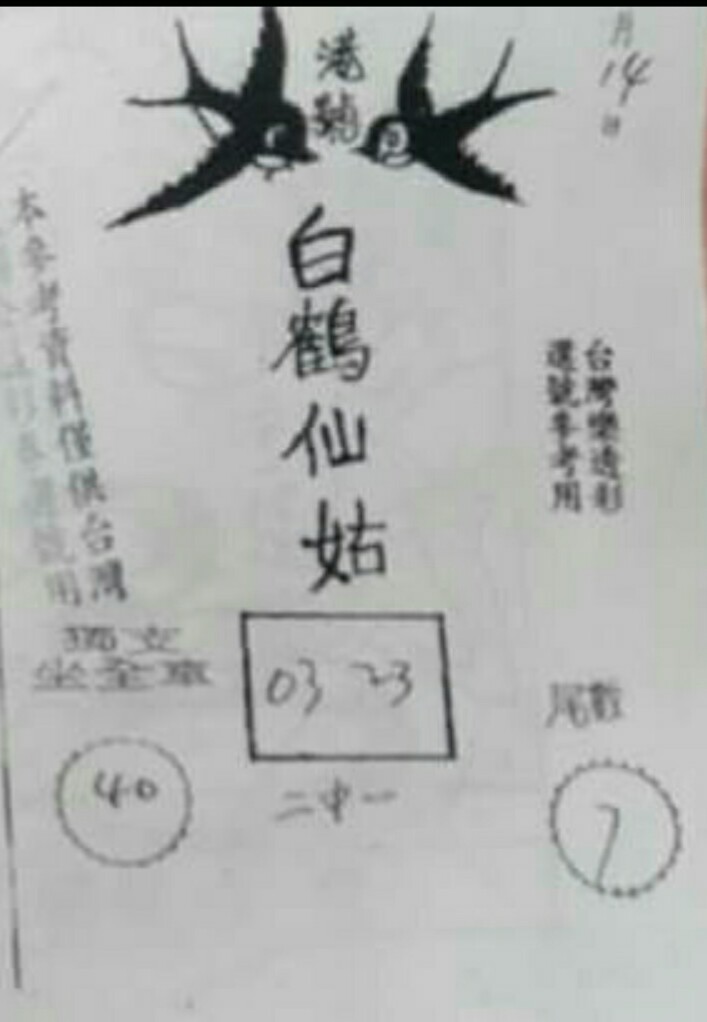 港號
月
14
日
白鶴仙姑
台灣樂透彩
選號參考用
本參考資料僅供台灣
號用
獨立
坐全車
03 23
尾數
40
二中一
7